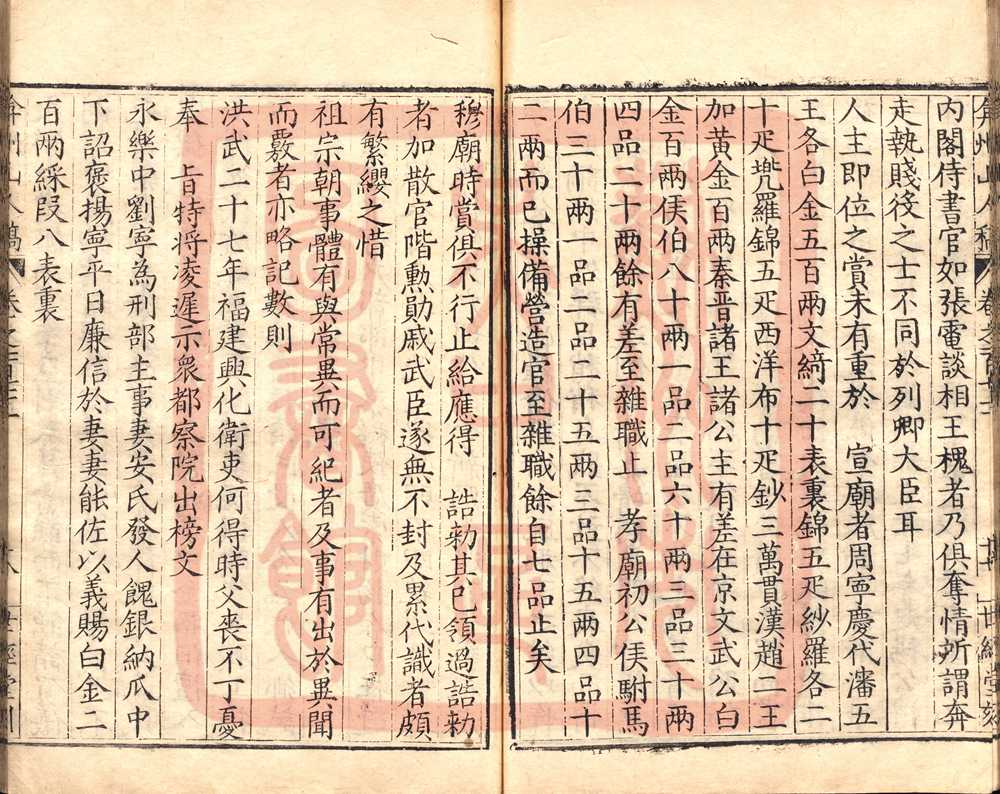 弇州山人稿 卷之一百
世經堂刻
内閣侍書官如張電談相王槐者乃俱奪情所謂奔
走執賤役之士不同於列卿大臣耳
人主即位之賞未有重於 宣廟者周寧慶代瀋五
王各白金五百兩文綺二十表裏錦五疋紗羅各二
十疋兠羅錦五疋西洋布十疋鈔三萬貫漢趙二王
加黃金百兩秦晉諸王諸公主有差在京文武公白
金百兩侯伯八十兩一品二品六十兩三品三十兩
四品二十兩餘有差至雜職止 孝廟初公侯駙馬
伯三十兩一品二品二十五兩三品十五兩四品十
二兩而已操備營造官至雜職餘自七品止矣
穆廟時賞俱不行止給應得 誥勑其已領過誥勑
者加散官階勲勛戚武臣遂無不封及累代識者頗
有繁纓之惜
祖宗朝事體有與常異而可紀者及事有出於異聞
而覈者亦略記數則
洪武二十七年福建興化衛吏何得時父喪不丁憂
奉 旨特将凌遲示衆都察院出榜文
永樂中劉寧為刑部主事妻安氏發人餽銀納瓜中
下詔褒揚寧平日廉信於妻妻能佐以義賜白金二
百兩綵段八表裏
弇州山人稿 卷之百
世經堂刻